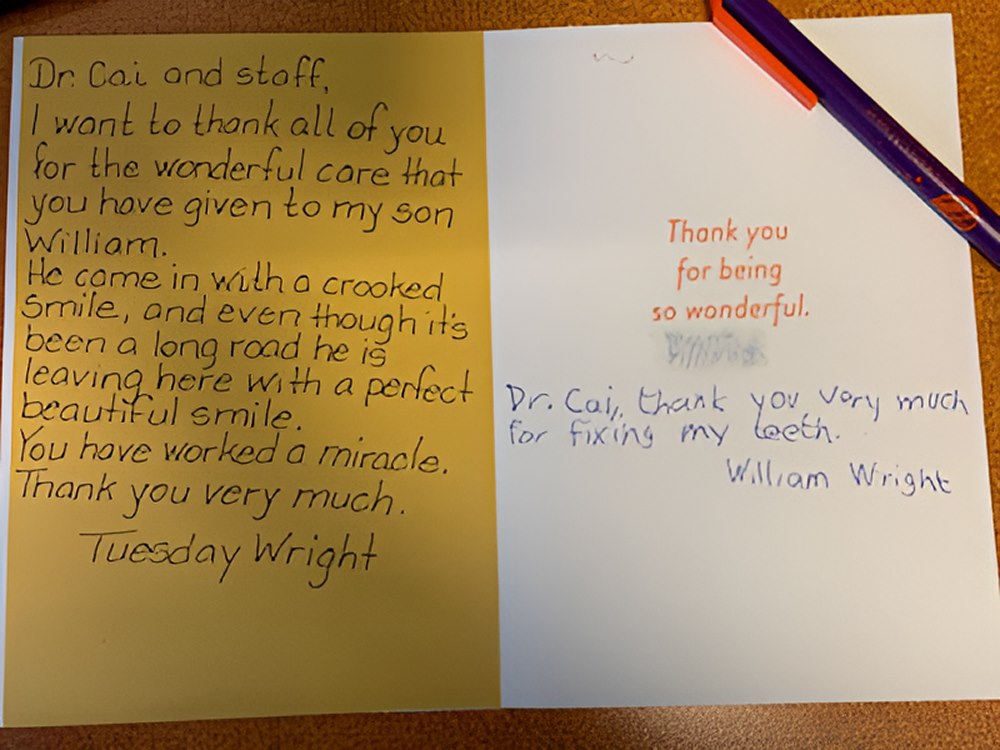 Dr. Cai and staff,
I want to thank all of you
for the wonderful care that
you have given to my son
William.
He came in with a crooked
smile, and even though it's
been a long road he is
leaving here with a perfect
beautiful smile.
You have worked a miracle.
Thank you very much.
Tuesday Wright
Thank you
for being
so wonderful.
Dr. Cai, thank you very much
for fixing my teeth.
William Wright